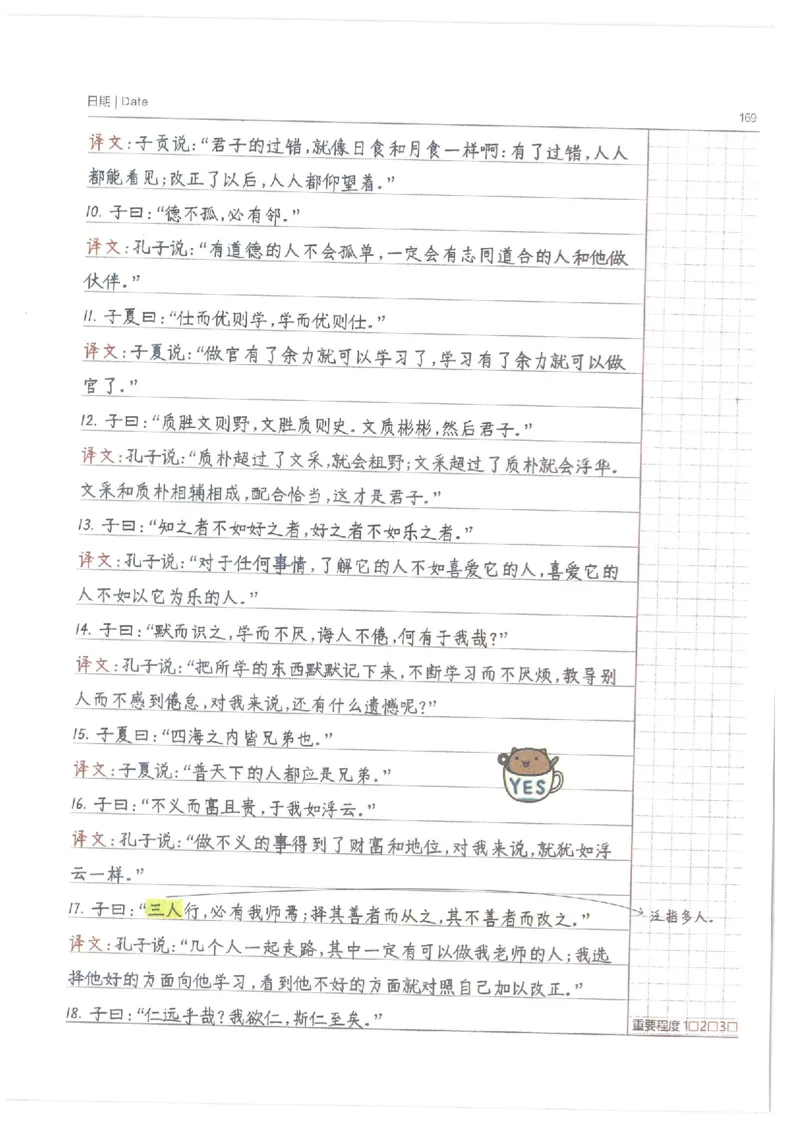 日期 | Date
169
译文:子贡说:“君子的过错,就像日食和月食一样啊:有了过错,人人
都能看见;改正了以后,人人都仰望着。”
10. 子曰:“德不孤,必有邻。”
译文:孔子说:“有道德的人不会孤单,一定会有志同道合的人和他做
伙伴。”
11. 子夏曰:“仕而优则学,学而优则仕。”
译文:子夏说:“做官有了余力就可以学习了,学习有了余力就可以做
官了。”
12. 子曰:“质胜文则野,文胜质则史。文质彬彬,然后君子。”
译文:孔子说:“质朴超过了文采,就会粗野;文采超过了质朴就会浮华。
文采和质朴相辅相成,配合恰当,这才是君子。”
13. 子曰:“知之者不如好之者,好之者不如乐之者。”
译文:孔子说:“对于任何事情,了解它的人不如喜爱它的人,喜爱它的
人不如以它为乐的人。”
14. 子曰:“默而识之,学而不厌,诲人不倦,何有于我哉?”
译文:孔子说:“把所学的东西默默记下来,不断学习而不厌烦,教导别
人而不感到倦怠,对我来说,还有什么遗憾呢?”
15. 子夏曰:“四海之内皆兄弟也。”
译文:子夏说:“普天下的人都应是兄弟。”
YES
16. 子曰:“不义而富且贵,于我如浮云。”
译文:孔子说:“做不义的事得到了财富和地位,对我来说,就犹如浮
云一样。”
17. 子曰:“三人行,必有我师焉;择其善者而从之,其不善者而改之。”
泛指多人.
译文:孔子说:“几个人一起走路,其中一定有可以做我老师的人;我选
择他好的方面向他学习,看到他不好的方面就对照自己加以改正。”
18. 子曰:“仁远乎哉?我欲仁,斯仁至矣。”
重要程度 1□2□3□